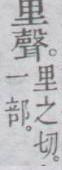 里聲。
里之切。
一部。